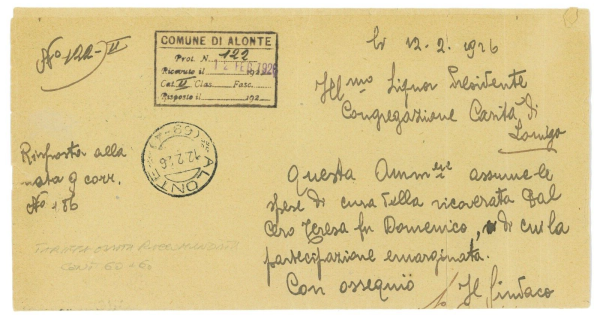 N° 122-II
COMUNE DI ALONTE
Prot. N. 122
Ricevuto il 12 FEB 1926 192
Cat. II Clas. Fasc.
Risposto il 192
li 12.2.1926
Ill.mo Signor Presidente
Congregazione Carità di
Lonigo
ALONTE
12.2.26
Risposta alla
nota 9 corr.
N° 186
Questa Amm.ne assume le
spese di cura della ricoverata Dal
Cero Teresa fu Domenico, di cui la
partecipazione emarginata.
Con ossequio
Il Sindaco